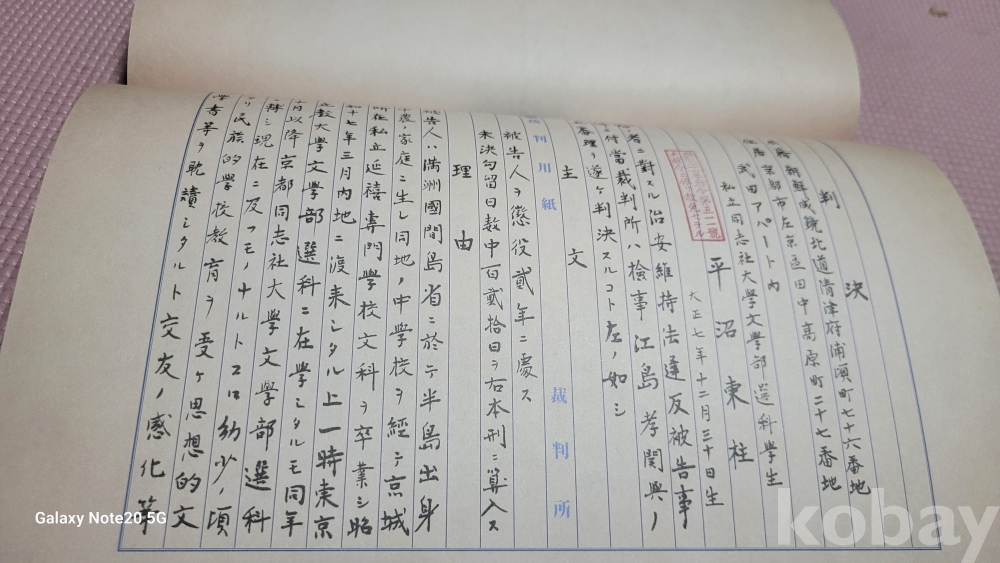 判決
朝鮮咸鏡北道清津府浦項町七十六番地
京都市左京區田中高原町二十七番地
武田アパート内
私立同志社大學文學部選科學生
平沼東柱
大正七年十二月三十日生
者ニ對スル治安維持法違反被告事
付當裁判所ハ檢事江島孝關與ノ
審理ヲ遂ケ判決スルコト左ノ如シ
主文
判用紙 裁判所
被告人ヲ懲役貳年ニ處ス
未決勾留日數中百貳拾日ヲ右本刑ニ算入ス
理由
被告人ハ滿洲國間島省ニ於テ半島出身
農家庭ニ生レ同地ノ中學校ヲ經テ京城
所在私立延禧專門學校文科ヲ卒業シ昭
和十七年三月内地ニ渡來シタル上一時東京
立教大學文學部選科ニ在學シタルモ同年
月以降京都同志社大學文學部選科
ニ轉シ現在ニ及フモノナルトコロ幼少ノ頃
ヨリ民族的學校教育ヲ受ケ思想的文
學書等ヲ耽讀シタルト交友ノ感化等
Galaxy Note20 5G
kobay